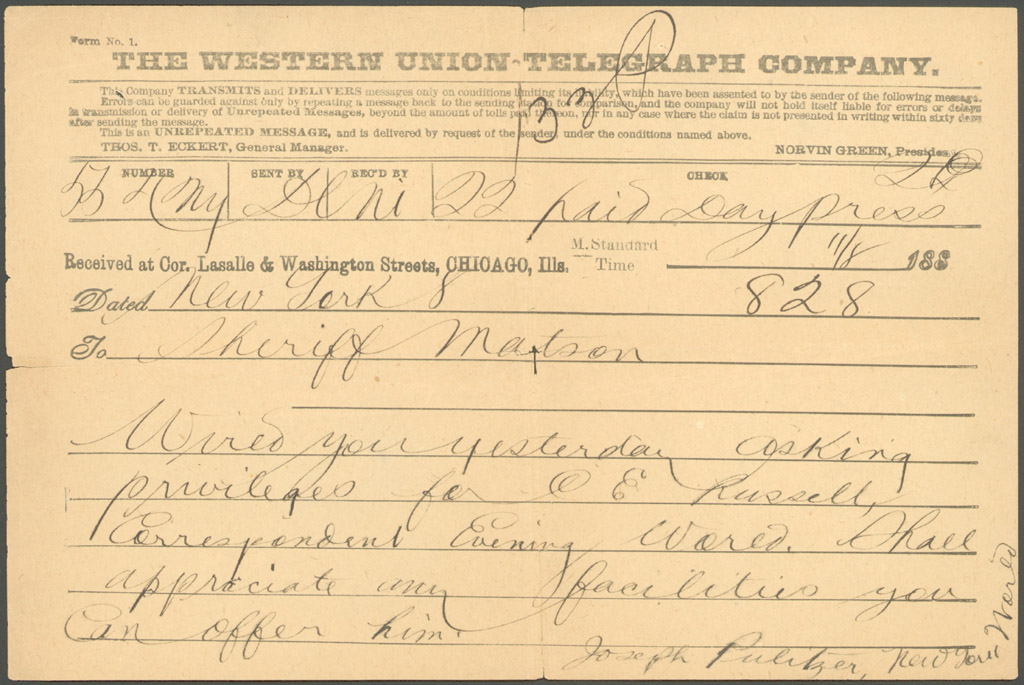 Form No. 1.
THE WESTERN UNION TELEGRAPH COMPANY.
This Company TRANSMITS and DELIVERS messages only on conditions limiting its liability, which have been assented to by the sender of the following message.
Errors can be guarded against only by repeating a message back to the sending station for comparison, and the company will not hold itself liable for errors or delays
in transmission or delivery of Unrepeated Messages, beyond the amount of tolls paid thereon, nor in any case where the claim is not presented in writing within sixty days
after sending the message.
This is an UNREPEATED MESSAGE, and is delivered by request of the sender, under the conditions named above.
THOS. T. ECKERT, General Manager. NORVIN GREEN, President.
NUMBER SENT BY REC'D BY CHECK
Ny 22 paid Day press
M. Standard 11/8
Received at Cor. Lasalle & Washington Streets, CHICAGO, Ills. Time 188
Dated New York 8 828
To Sheriff Matson
Wired you yesterday asking
privileges for C E Russell,
Correspondent Evening World. Shall
appriciate any facilities you
Can offer him.
Joseph Pulitzer, New York World